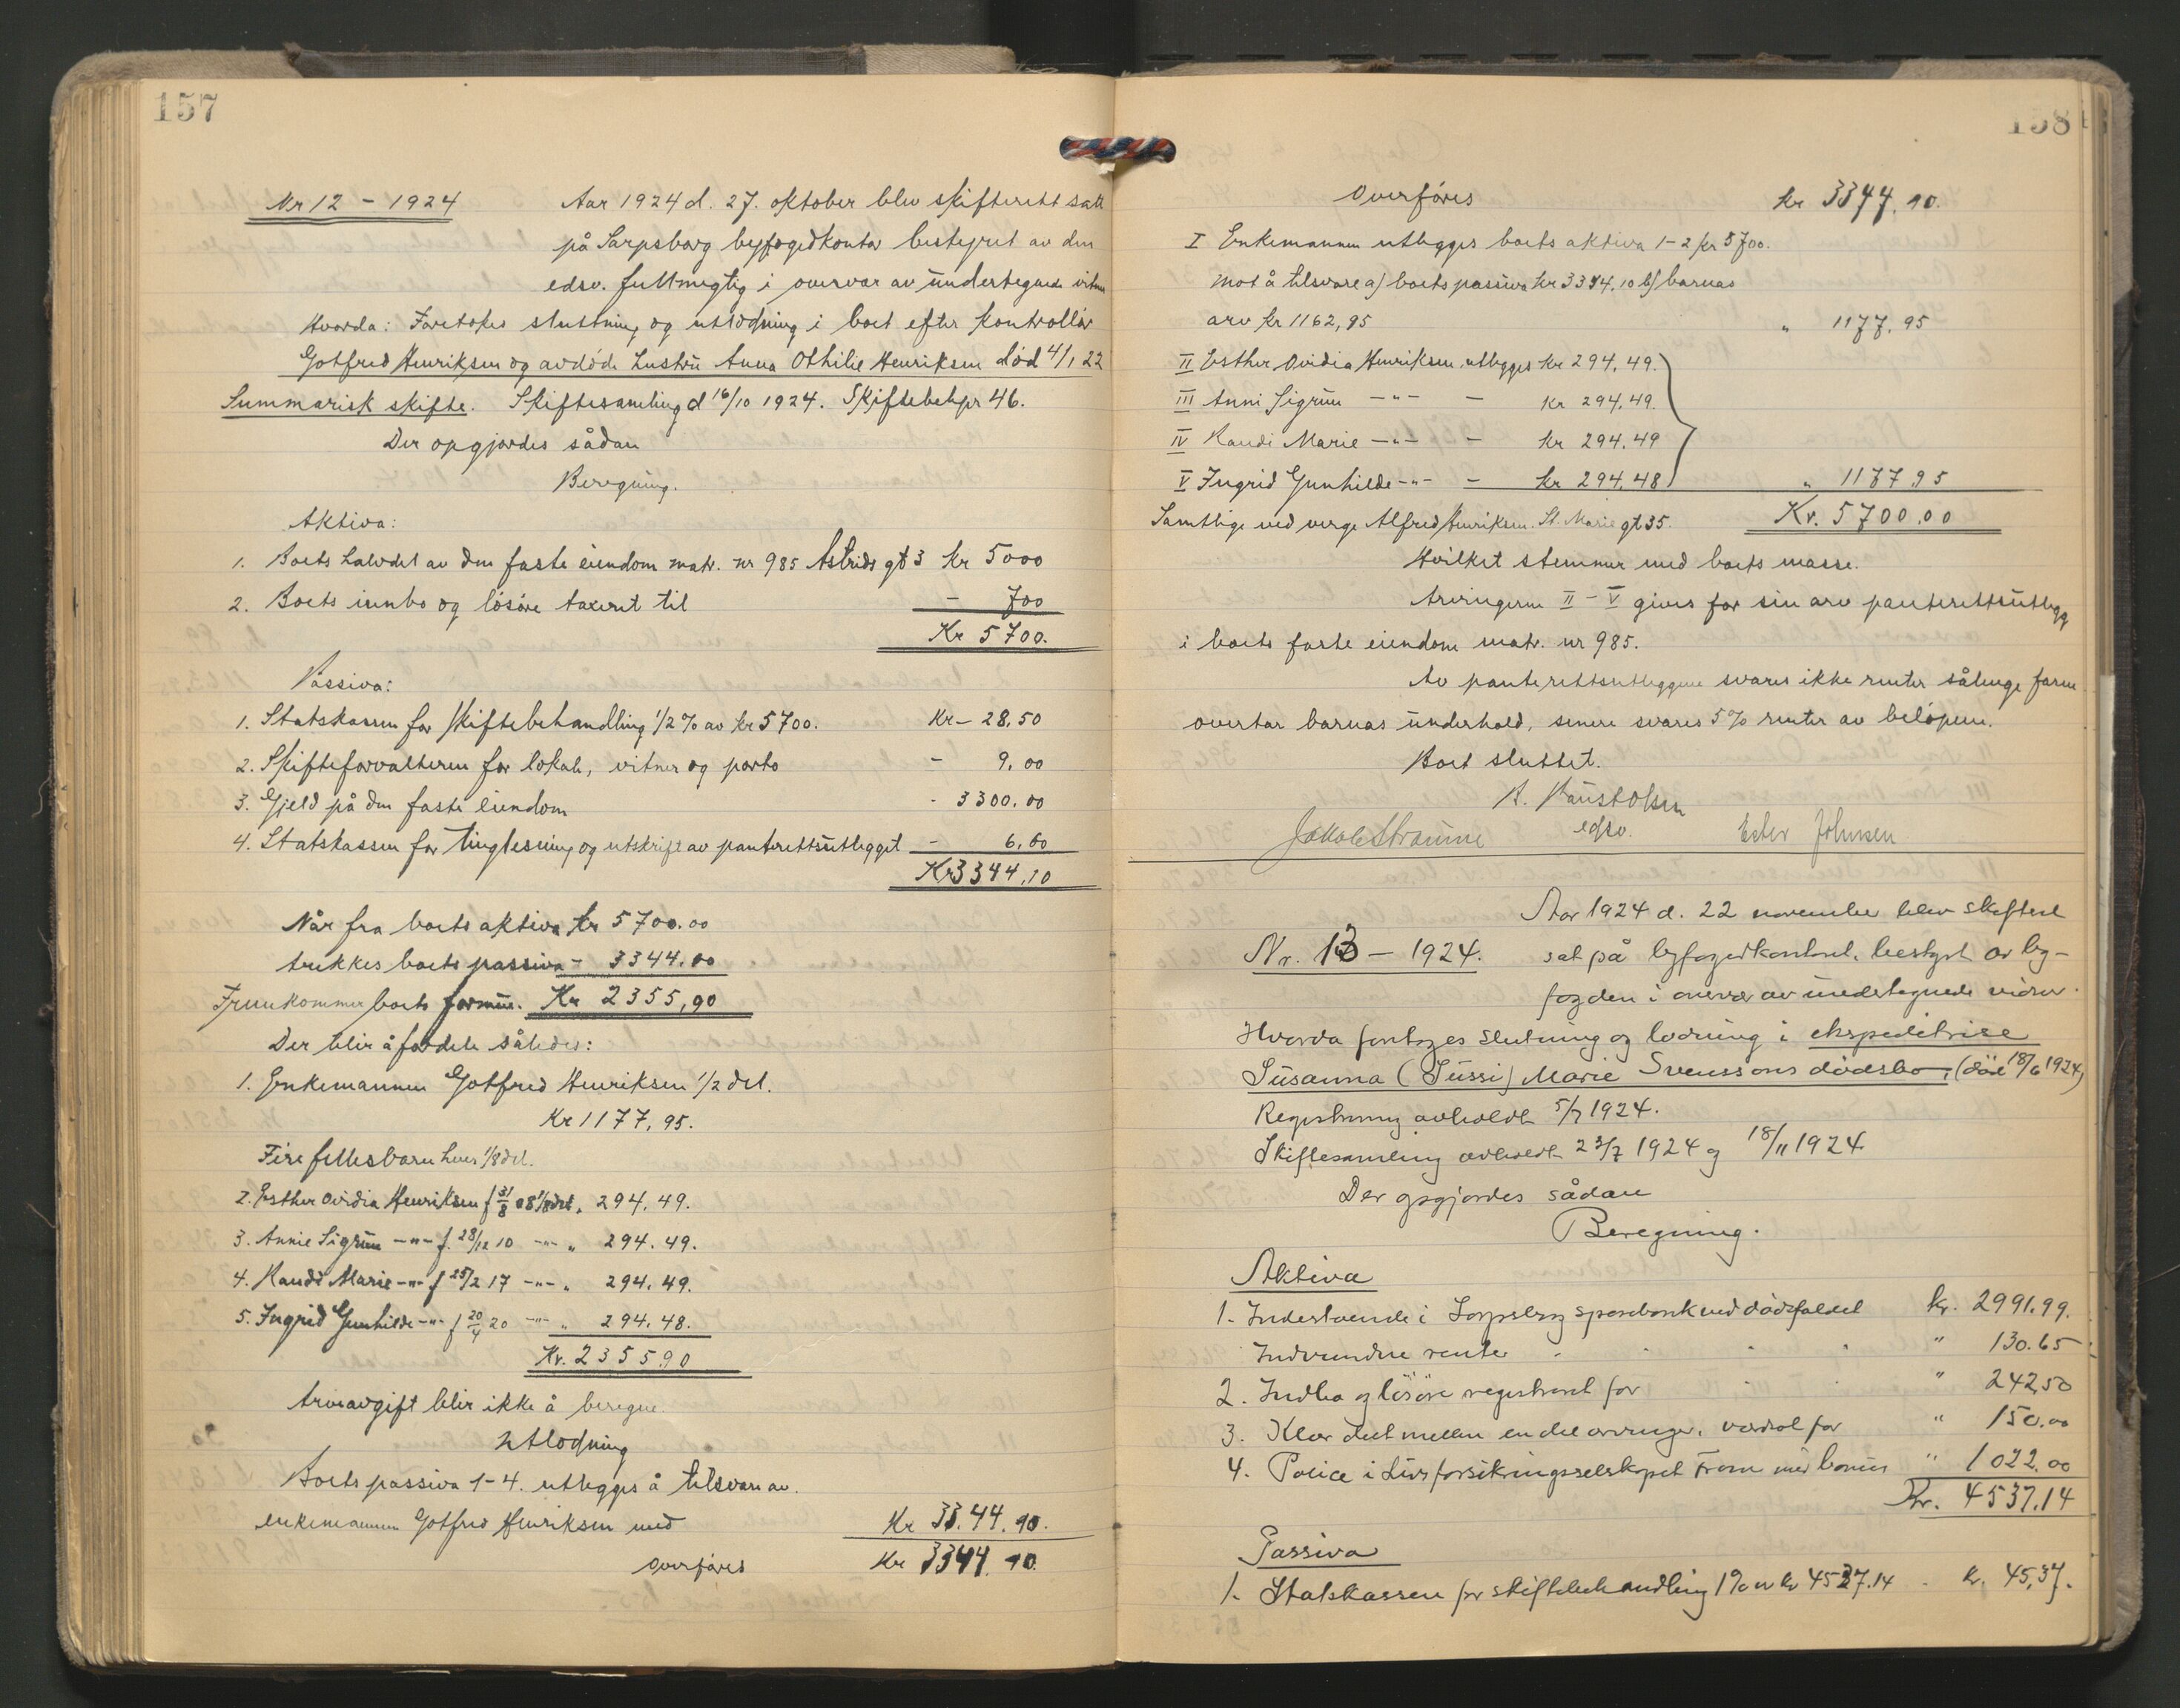 157
Nr 12 - 1924
Aar 1924 d. 27. oktober blev skifterett satt
på Sarpsborg byfogedkontor bestyret av den
edsv. fullmegtig i overvær av undertegnede vitner
Hvorda: Foretokes sluttning og utlodning i boet efter kontrollør
Gotfred Henriksen og avdøde hustru Anna Othilie Henriksen død 4/1 22
Summarisk skifte. Skiftesamling d 16/10 1924. Skiftebeh pr 46.
Der opgjordes sådan
Beregning.
Aktiva:
1. Boets halvdel av den faste eiendom matr. nr 985 Astrids gt 3 Kr 5000
2. Boets innbo og løsøre taxeret til - 700
Kr 5700.
Passiva:
1. Statskassen for skiftebehandling 1/2 % av kr 5700. Kr - 28,50
2. Skifteforvalteren for lokale, vitner og porto - 9,00
3. Gjeld på den faste eiendom - 3300.00
4. Statskassen for tinglesning og utskrift av panterettsutlegget - 6,60
Kr 3344,10
Når fra boets aktiva kr 5700.00
trekkes boets passiva - 3344.00
Fremkommer boets formue. Kr 2355,90
Der blir å fordele således:
1. Enkemannen Gotfred Henriksen 1/2 del.
Kr 1177,95.
Fire fellesbarn hver 1/8 del.
2. Esther Ovidia Henriksen f 31/8 08 1/8 del " 294,49.
3. Annie Sigrun -"- f. 28/12 10 -"- " 294.49.
4. Randi Marie -"- f 25/2 17 -"- " 294,49.
5. Ingrid Gunhilde -"- f 20/4 20 -"- " 294.48.
Kr. 2355,90
Arveavgift blir ikke å beregne.
Utlodning
Boets passiva 1-4. utlegges å tilsvare av
enkemannen Gotfred Henriksen med Kr 33.44.10.
overføres Kr 3344.10.
158
Overføres kr 3344.10.
I Enkemannen utlegges boets aktiva 1-2 kr 5700.
mot å tilsvare a) boets passiva kr 3344.10 b) barnas
arv kr 1162,95 " 1177.95
II Esther Ovidia Henriksen utlegges kr 294,49.
III Anni Sigrun -"- - kr 294.49.
IV Randi Marie -"- - kr 294.49
V Ingrid Gunhilde -"- - kr 294.48 " 1177.95
Samtlige ved verge Alfred Henriksen. St. Marie gt 35. Kr. 5700.00
Hvilket stemmer med boets masse.
Arvingerne II - V gives for sin arv panterettsutlegg
i boets faste eiendom matr. nr 985.
Av panterettsutleggene svares ikke renter sålenge faren
overtar barnas underhold, senere svares 5% renter av beløpene.
Boet sluttet.
edsv.
Ester Johnsen
Aar 1924 d. 22 november blev skifteret
Nr. 13 - 1924. sat på byfogedkontoret, bestyrt av by-
fogden i overvær av undertegnede vidner.
Hvorda foretoges slutning og lodning i ekspeditrise
Susanna (Sussi) Marie Svenssons dødsbo, (død 18/6 1924)
Registrering avholdt 5/7 1924.
Skiftesamling avholdt 23/7 1924 og 18/11 1924
Der opgjordes sådan
Beregning.
Aktiva
1. Indestaaende i Sarpsborg sparebank ved dødsfaldet kr. 2991.99.
Indvundne renter " 130.65
2. Indbo og løsøre registrert for " 242,50
3. Klær delt mellem en del arvinger, værdsat for " 150.00
4. Police i Livsforsikringsselskapet Fram med bonus " 1022.00
Kr. 4537.14
Passiva
1. Statskassen for skiftebehandling 1% av kr 4537.14 kr. 45,37.